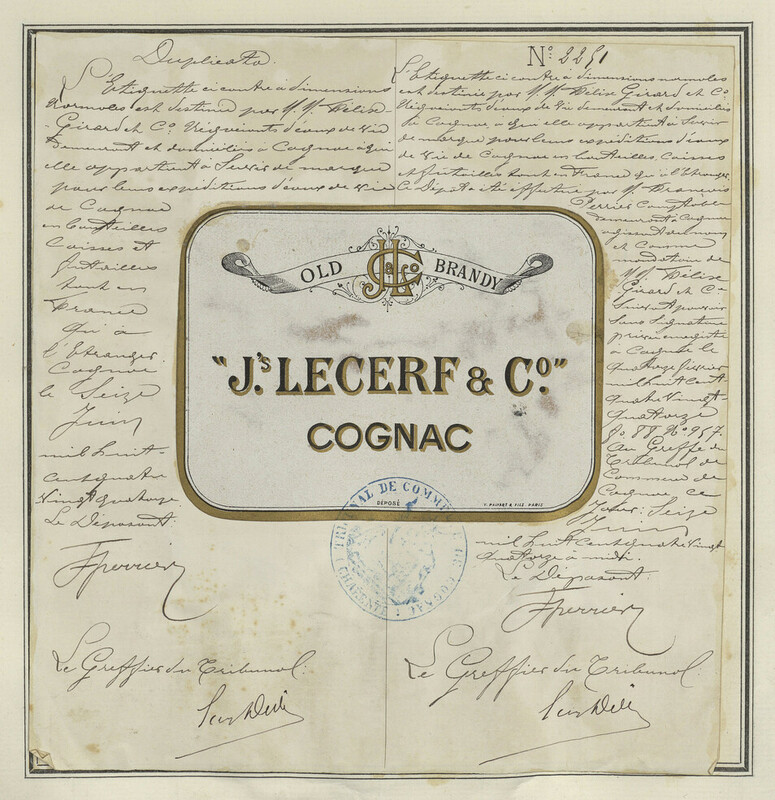 Duplicata.
L'Etiquette ci contre à dimensions
normales est destinée par MM. Félix
Girard et Cº Négociants d'eaux de vie
demeurant et domiciliés à Cognac à qui
elle appartient à Servir de marque
pour leurs expéditions d'eaux de vie
de Cognac
en bouteilles
Caisses et
futailles
tant en
France
qu'à
l'Etranger.
Cognac
le Seize
Juin
mil huit-
cent quatre
vingt quatorze
Le Déposant
Fperrier
Le Greffier du Tribunal.
Nº 2251
L'Etiquette ci contre à dimensions normales
est destinée par MM. Félix Girard et Cº
Négociants d'eaux de vie demeurant et domiciliés
à Cognac, à qui elle appartient à Servir
de marque pour leurs expéditions d'eaux
de vie de Cognac en bouteilles, caisses
et futailles tant en France qu'à l'Etranger.
Ce Dépôt a été effectué par M. François
Perrier Comptable
demeurant à Cognac
agissant au nom
et comme
mandataire de
MM. Félix
Girard et Cº
Suivant pouvoir
Sous Signature
privée enregistré
à Cognac le
quatorze février
mil huit cent
quatre vingt
quatorze
fº 88 Nº 957.
Au Greffe du
Tribunal de
Commerce de
Cognac ce
Jour Seize
Juin
mil huit cent quatre vingt
quatorze à midi.
Le Déposant.
Fperrier
Le Greffier du Tribunal.
OLD J L & Co BRANDY
"J.S LECERF & Cº."
COGNAC
DÉPOSÉ
TRIBUNAL DE COMMERCE DE COGNAC
CHARENTE